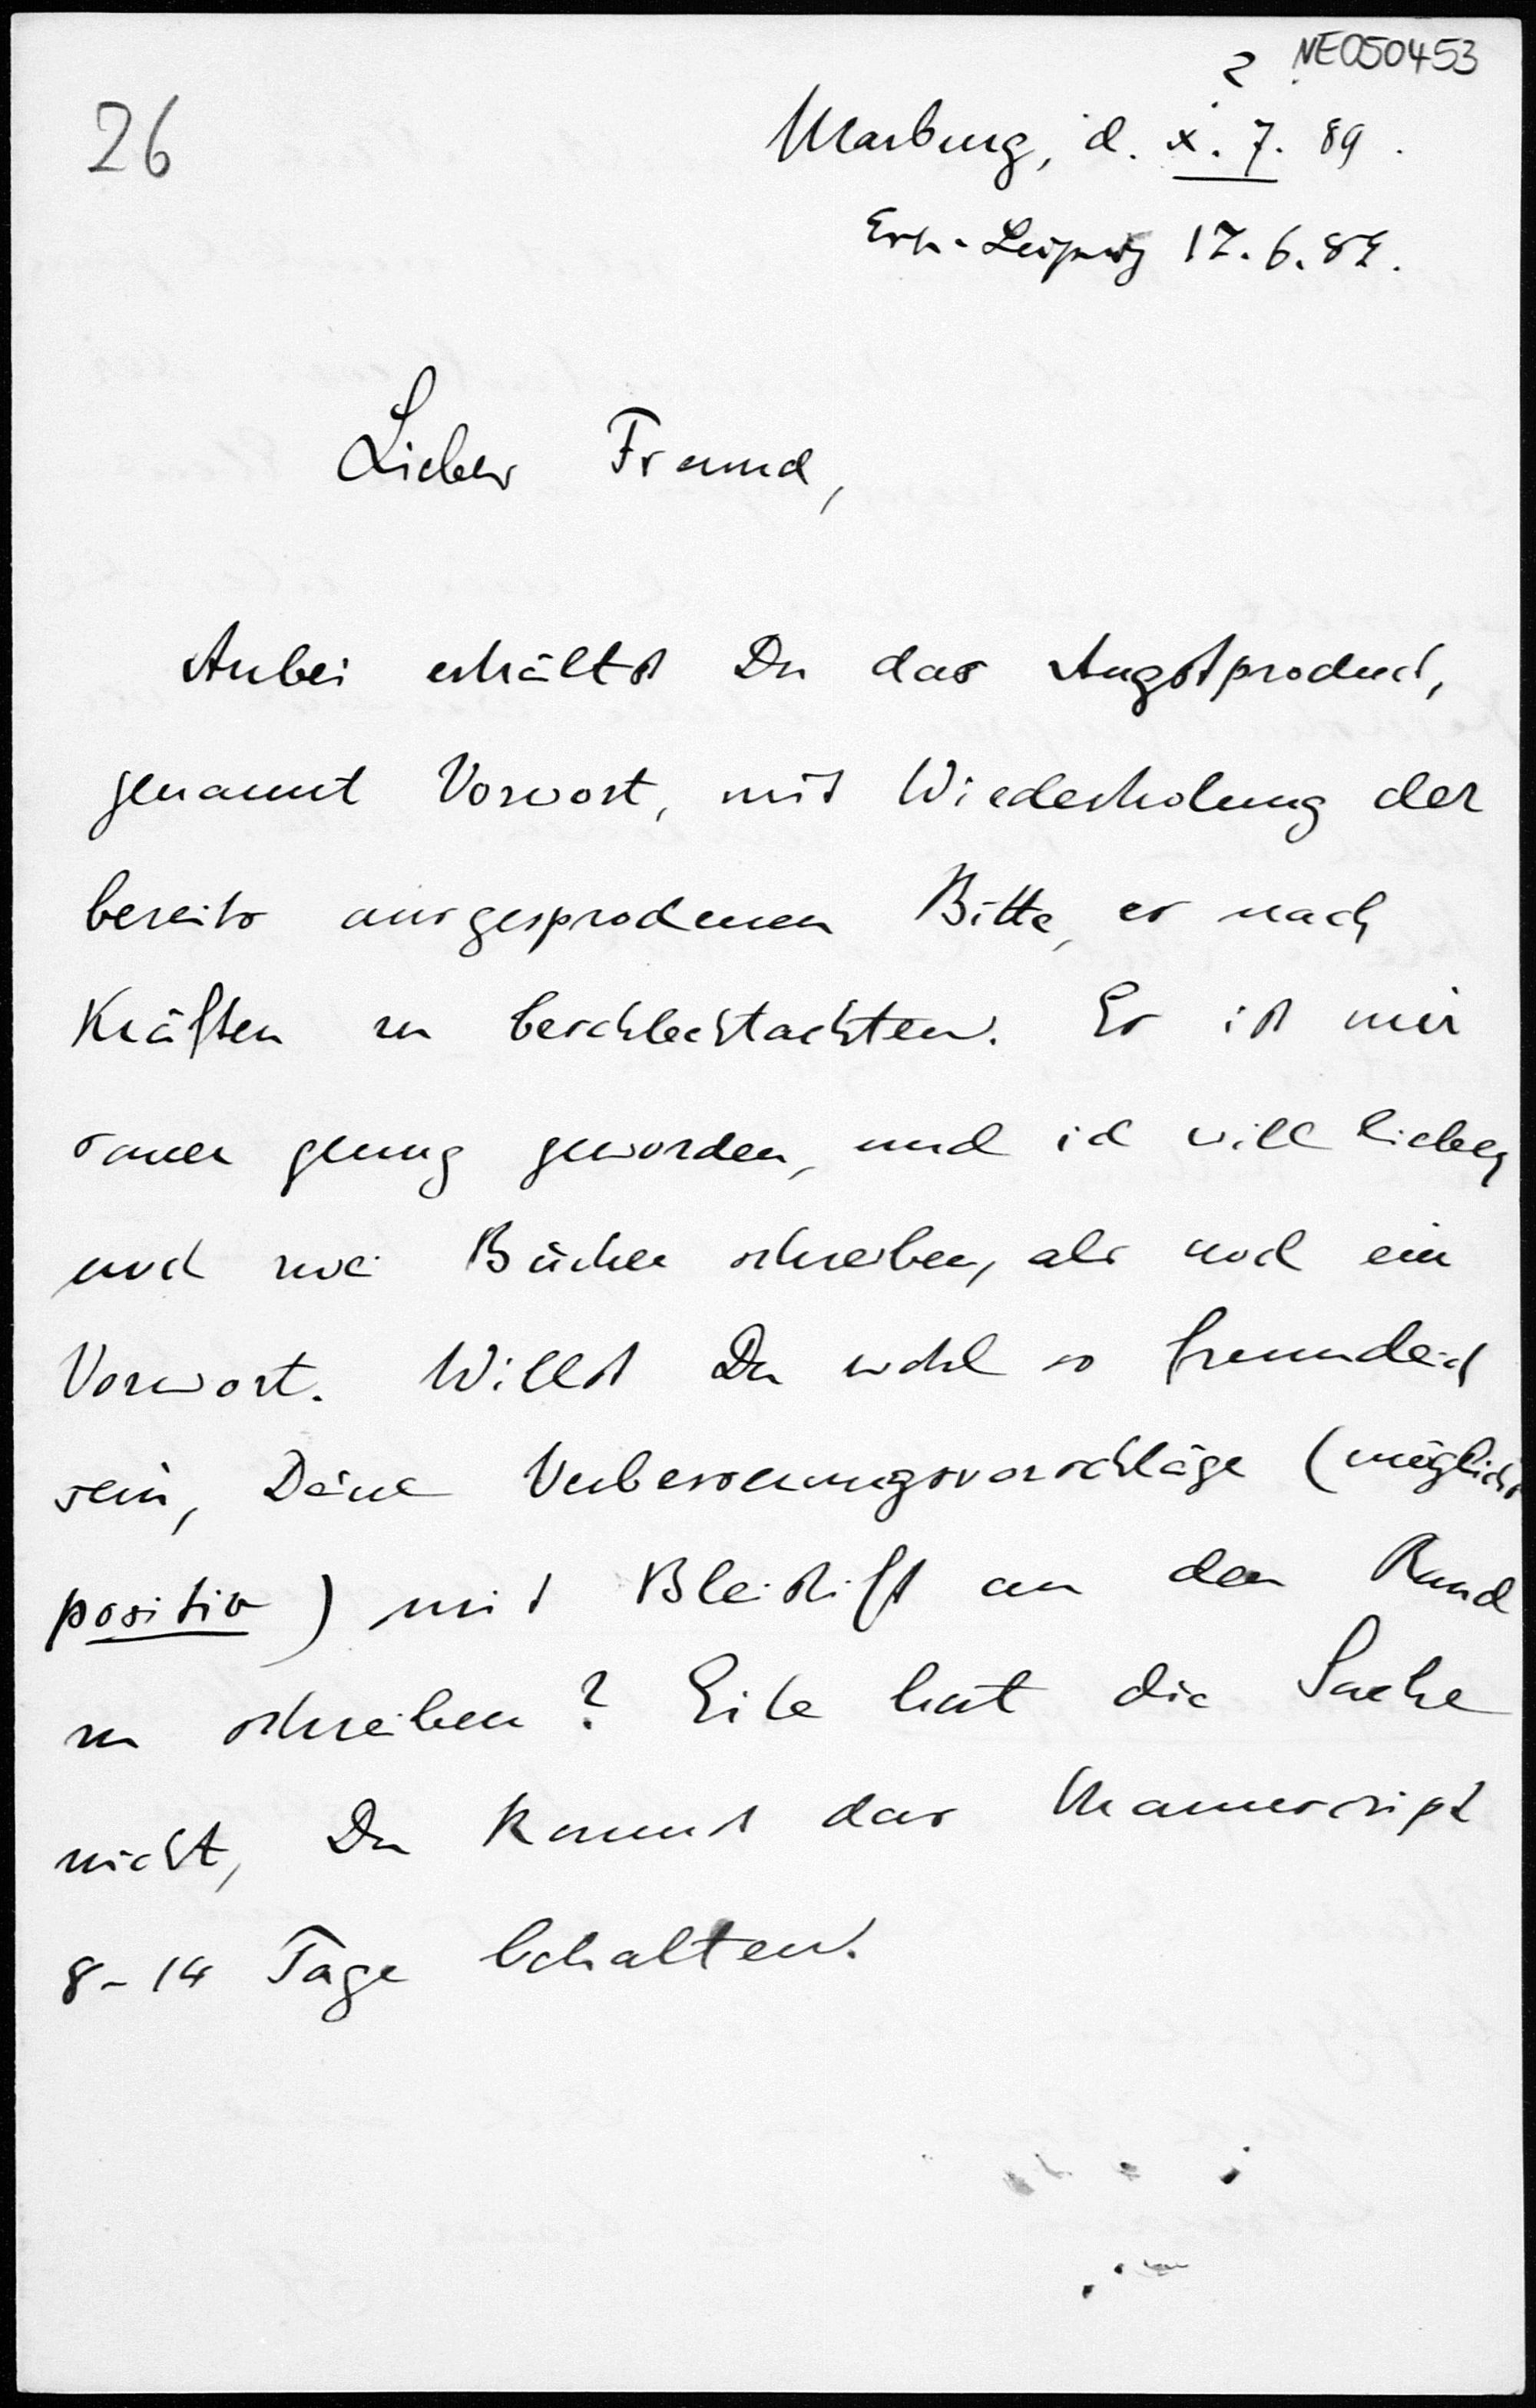 NE050453
2
26
Marburg, d. x. 7. 89.
Erh. Leipzig 17. 6. 89.
Lieber Freund,
Anbei erhältst Du das Angstproduct,
genannt Vorwort, mit Wiederholung der
bereits ausgesprochenen Bitte, es nach
Kräften zu beschlechtachten. Es ist mir
sauer genug geworden, und ich will lieber
noch zwei Bücher schreiben, als noch ein
Vorwort. Willst Du wohl so freundlich
sein, Deine Verbesserungsvorschläge (möglichst
positiv) mit Bleistift an den Rand
zu schreiben? Eile hat die Sache
nicht, Du kannst das Manuscript
8-14 Tage behalten.